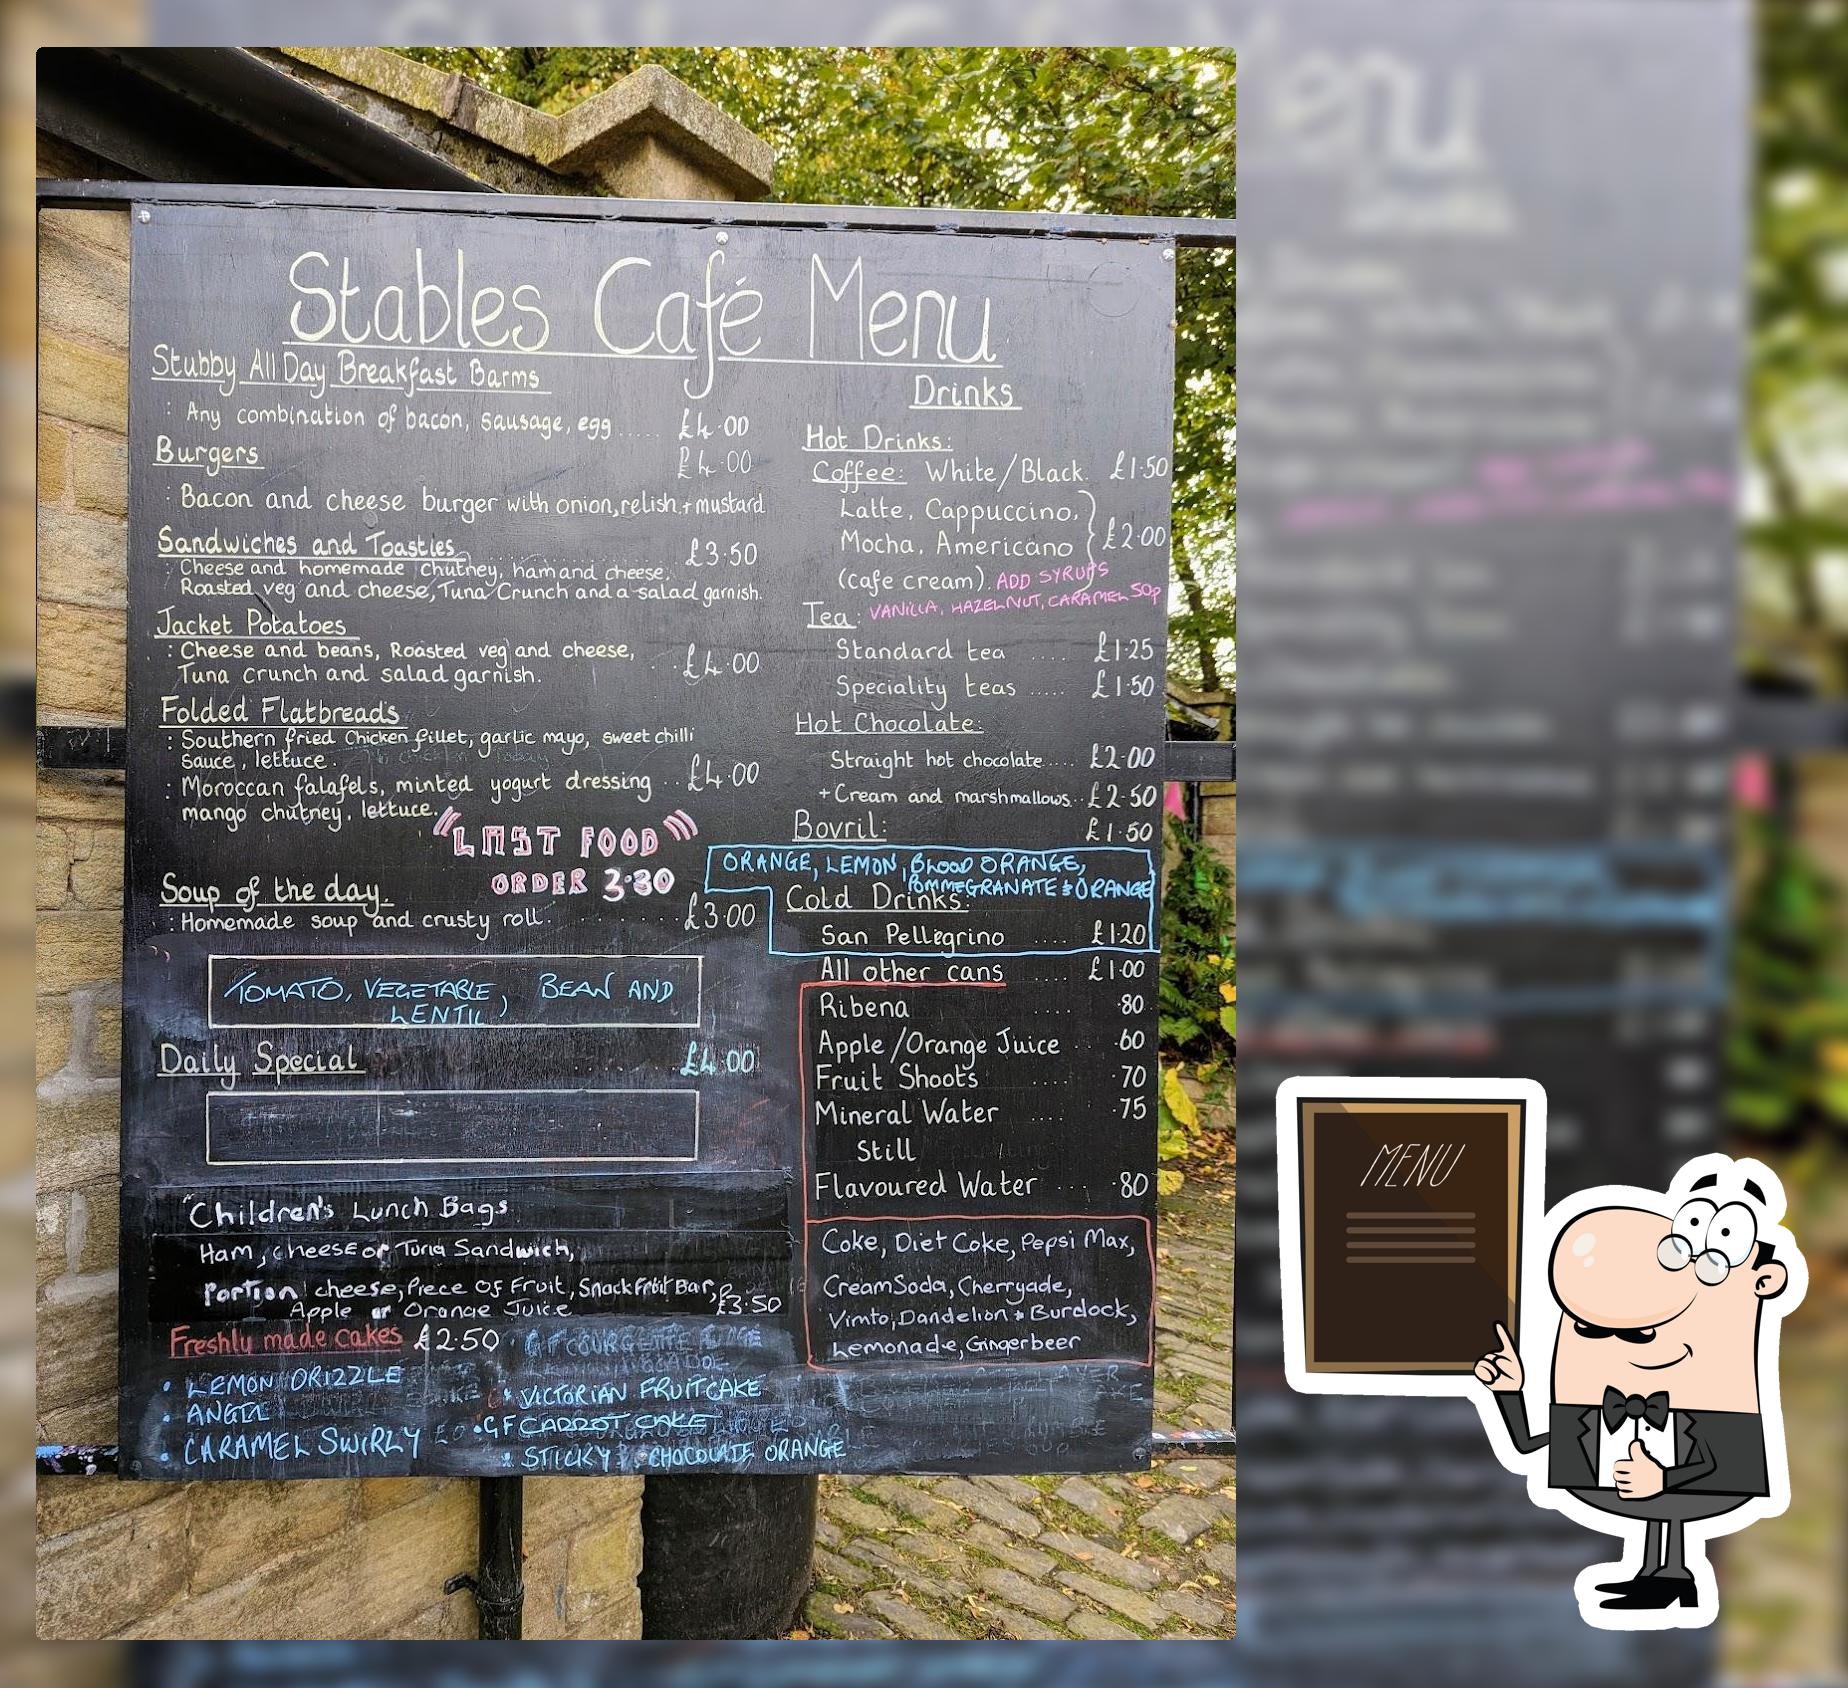 Stables Café Menu
Stubby All Day Breakfast Barms
: Any combination of bacon, sausage, egg ..... £4.00
Burgers £4.00
: Bacon and cheese burger with onion, relish + mustard
Sandwiches and Toasties ............ £3.50
: Cheese and homemade chutney, ham and cheese,
Roasted veg and cheese, Tuna Crunch and a salad garnish.
Jacket Potatoes
: Cheese and beans, Roasted veg and cheese,
Tuna crunch and salad garnish. ... £4.00
Folded Flatbreads
: Southern fried Chicken fillet, garlic mayo, sweet chilli
sauce, lettuce.
: Moroccan falafels, minted yogurt dressing .. £4.00
mango chutney, lettuce.
"LAST FOOD
ORDER 3.30
Soup of the day.
: Homemade soup and crusty roll. ........ £3.00
TOMATO, VEGETABLE, BEAN AND
LENTIL
Daily Special ..... £4.00
"Children's Lunch Bags
Ham, cheese or Tuna Sandwich,
Portion cheese, Piece of Fruit, Snack Fruit Bar,
Apple or Orange Juice £3.50
Freshly made cakes £2.50
• LEMON DRIZZLE
• ANGEL
• CARAMEL SWIRLY
• VICTORIAN FRUITCAKE
• GF CARROT CAKE
• STICKY CHOCOLATE ORANGE
Drinks
Hot Drinks:
Coffee: White/Black. £1.50
Latte, Cappuccino,
Mocha, Americano } £2.00
(cafe cream). ADD SYRUPS
VANILLA, HAZELNUT, CARAMEL 50p
Tea:
Standard tea .... £1.25
Speciality teas ..... £1.50
Hot Chocolate:
Straight hot chocolate.... £2.00
+ Cream and marshmallows.. £2.50
Bovril: £1.50
ORANGE, LEMON, BLOOD ORANGE,
POMMEGRANATE & ORANGE
Cold Drinks:
San Pellegrino .... £1.20
All other cans .... £1.00
Ribena .... .80
Apple/Orange Juice .. .60
Fruit Shoots .... .70
Mineral Water .... .75
Still
Flavoured Water ... .80
Coke, Diet Coke, Pepsi Max,
Cream Soda, Cherryade,
Vimto, Dandelion & Burdock,
Lemonade, Gingerbeer
MENU